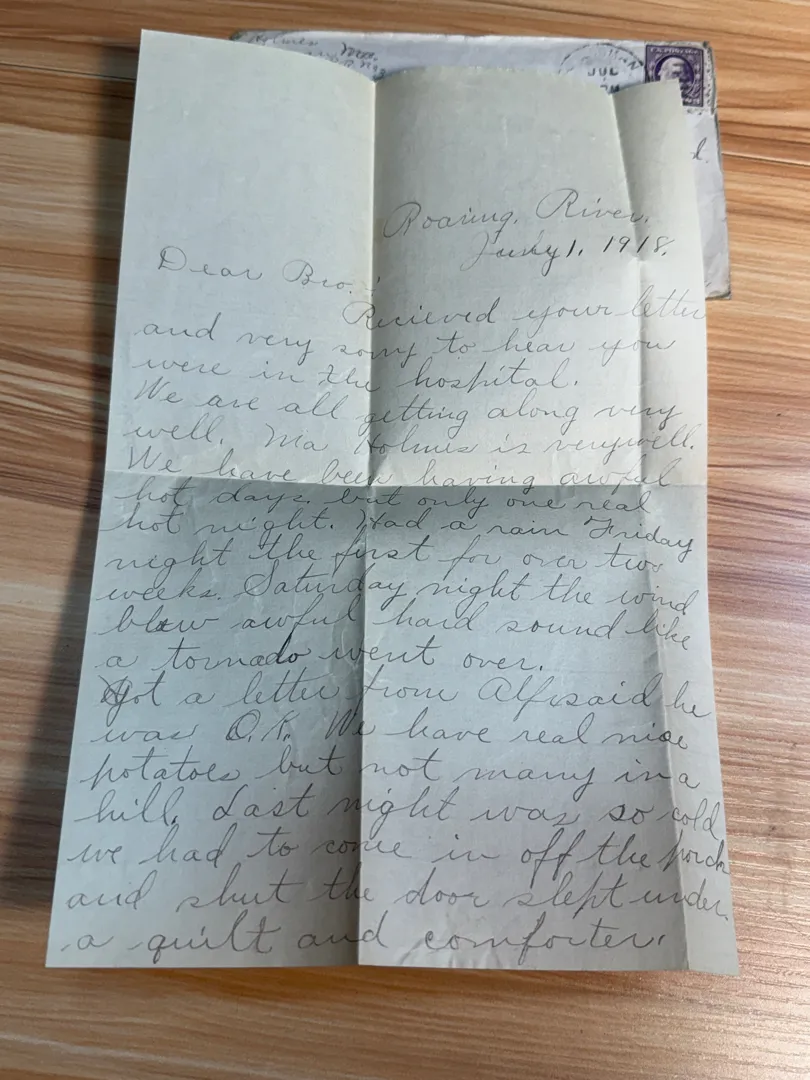 Holmes
JUL
Roaring, River,
July 1, 1918.
Dear Bro.:
Recieved your letter
and very sorry to hear you
were in the hospital.
We are all getting along very
well. Ma Holmes is very well.
We have been having awful
hot days. but only one real
hot night. Had a rain Friday
night the first for over two
weeks. Saturday night the wind
blew awful hard sound like
a tornado went over.
Got a letter from Alf. said he
was O.K. We have real nice
potatoes but not many in a
hill. Last night was so cold
we had to come in off the porch
and shut the door slept under
a quilt and comforter.